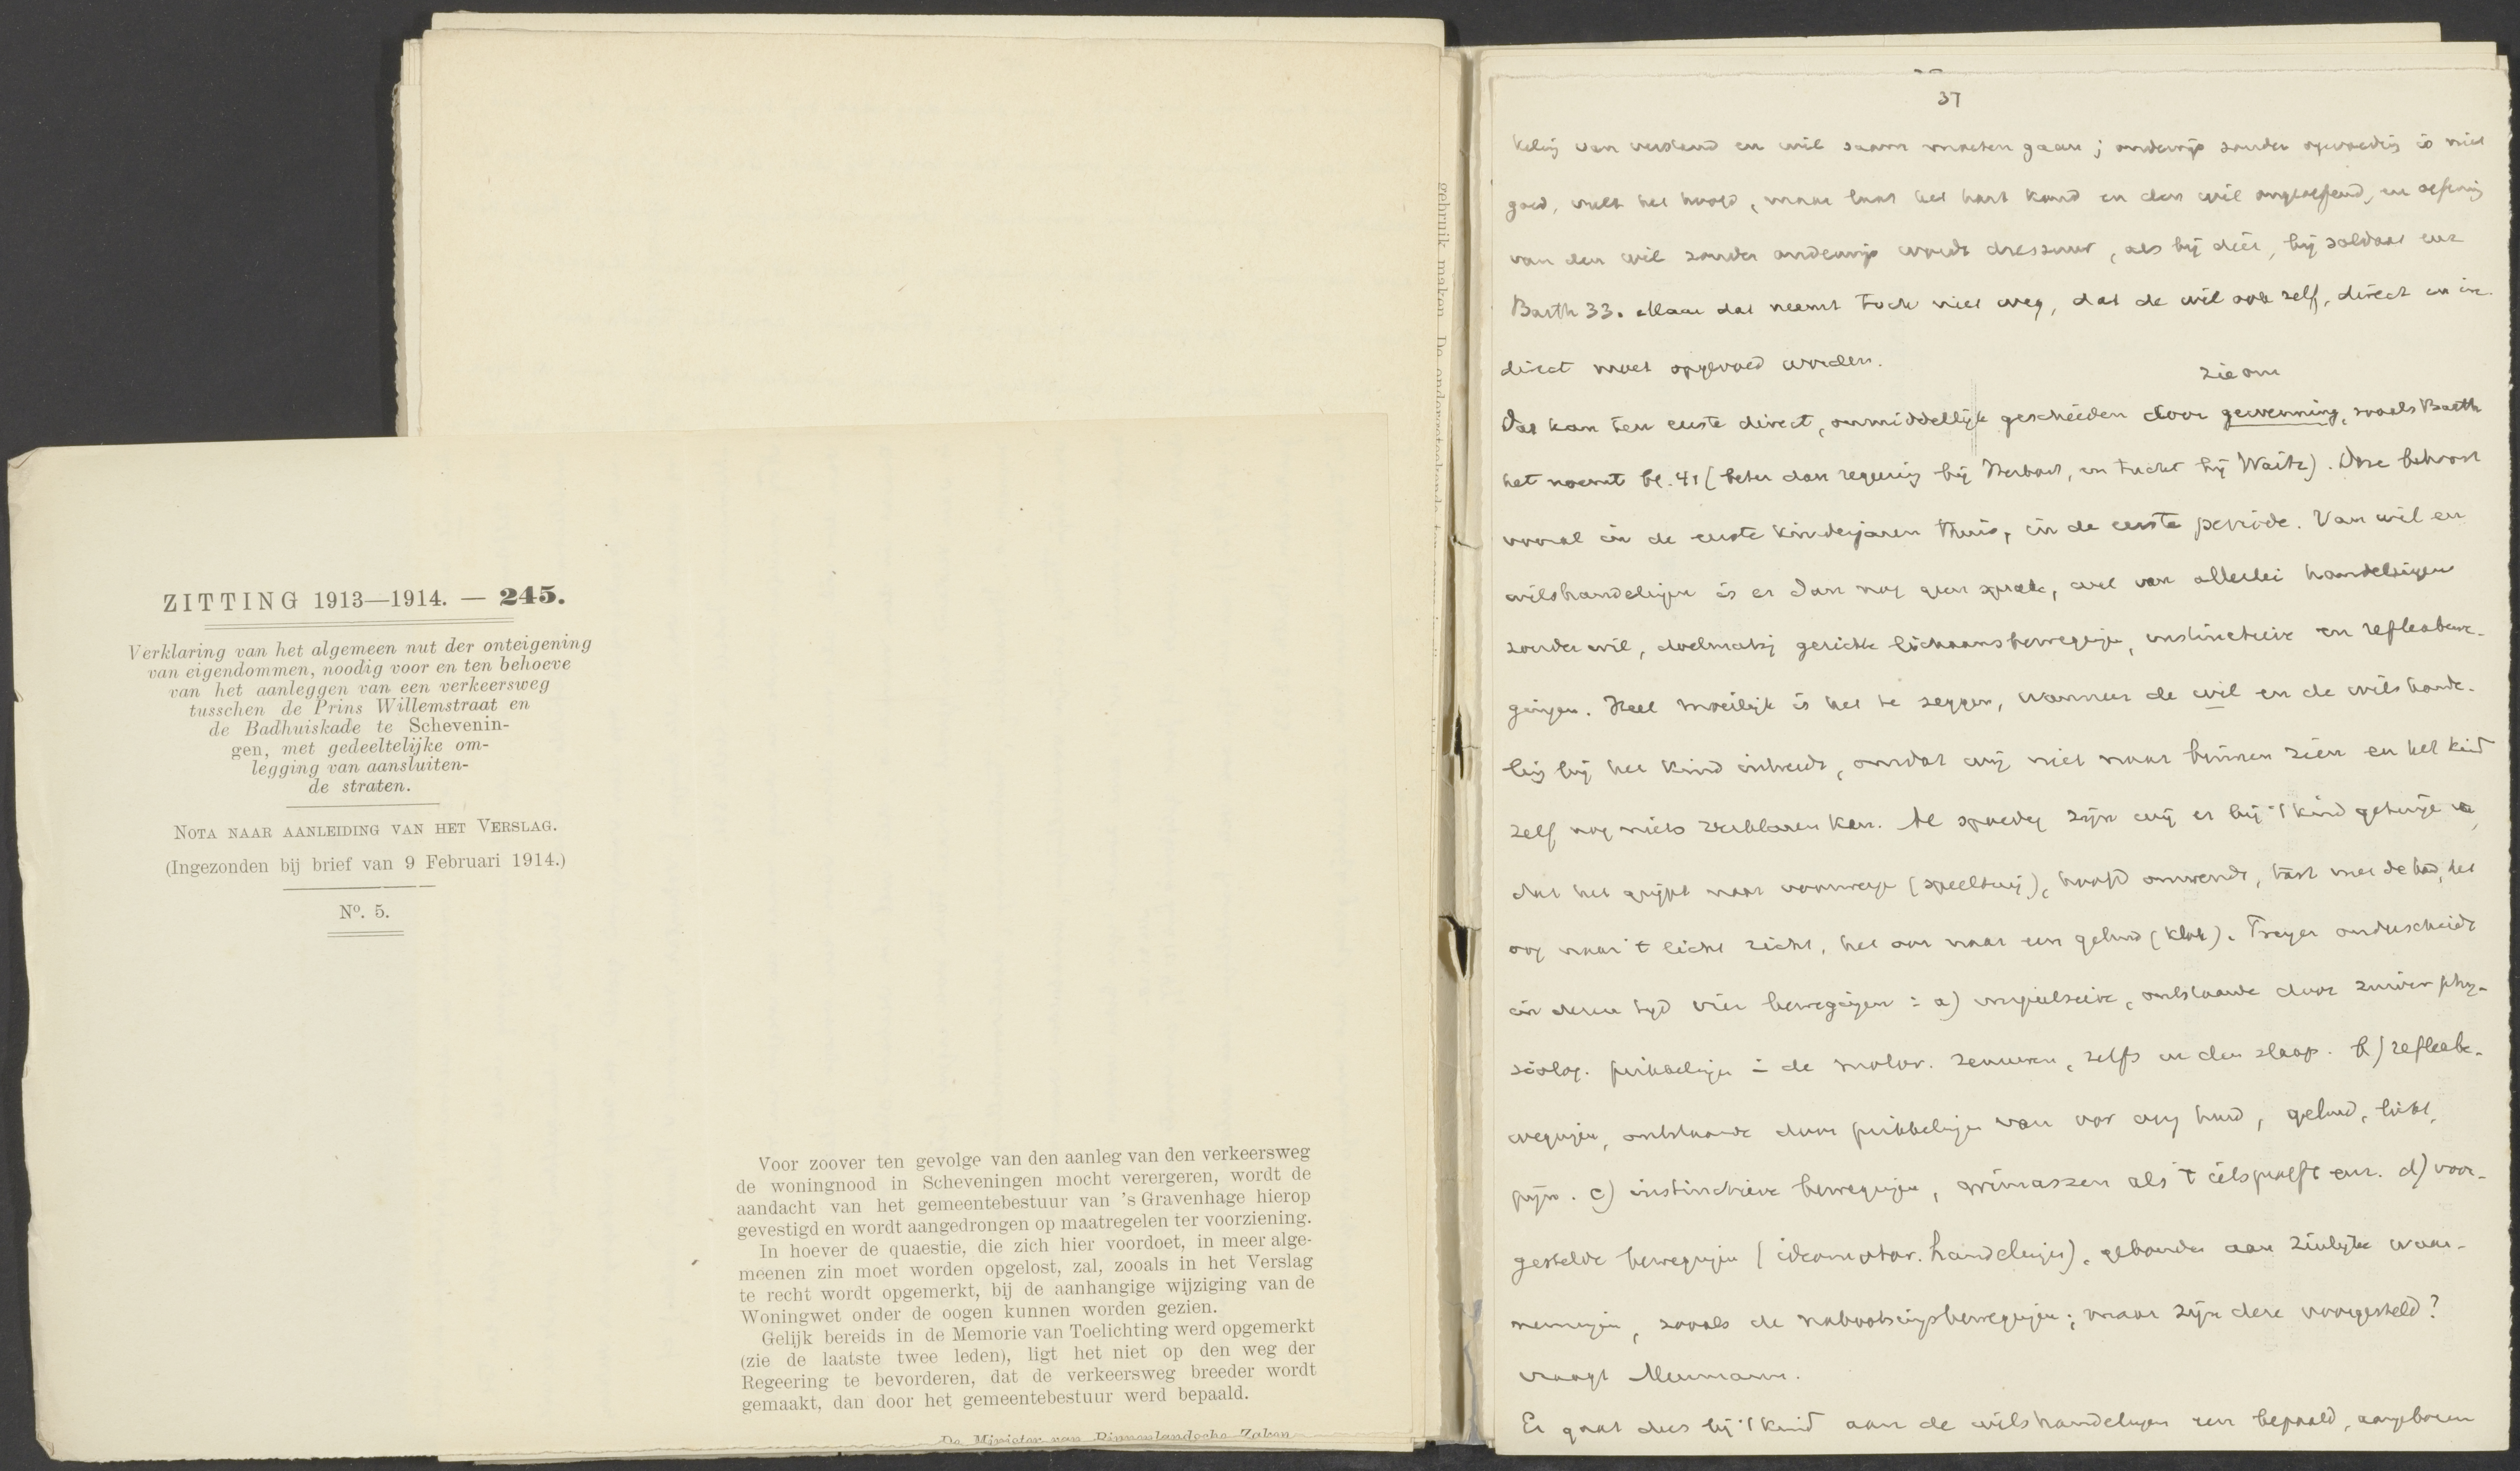 ZITTING 1913—1914. — 245.
Verklaring van het algemeen nut der onteigening
van eigendommen, noodig voor en ten behoeve
van het aanleggen van een verkeersweg
tusschen de Prins Willemstraat en
de Badhuiskade te Schevenin-
gen, met gedeeltelijke om-
legging van aansluiten-
de straten.
NOTA NAAR AANLEIDING VAN HET VERSLAG.
(Ingezonden bij brief van 9 Februari 1914.)
Nº. 5.
Voor zoover ten gevolge van den aanleg van den verkeersweg
de woningnood in Scheveningen mocht verergeren, wordt de
aandacht van het gemeentebestuur van 's Gravenhage hierop
gevestigd en wordt aangedrongen op maatregelen ter voorziening.
In hoever de quaestie, die zich hier voordoet, in meer alge-
meenen zin moet worden opgelost, zal, zooals in het Verslag
te recht wordt opgemerkt, bij de aanhangige wijziging van de
Woningwet onder de oogen kunnen worden gezien.
Gelijk bereids in de Memorie van Toelichting werd opgemerkt
(zie de laatste twee leden), ligt het niet op den weg der
Regeering te bevorderen, dat de verkeersweg breeder wordt
gemaakt, dan door het gemeentebestuur werd bepaald.
De Minister van Binnenlandsche Zaken
gebruik maken. De ondergeteekende
37
keling van verstand en wil saam moeten gaan; onderwijs zonder opvoeding is niet
goed, vult het hoofd, maar laat het hart koud en den wil ongeoefend, en oefening
van den wil zonder onderwijs wordt dressuur, als bij dier, bij soldaat enz
Barth 33. Maar dat neemt toch niet weg, dat de wil ook zelf, direct en in-
direct moet opgevoed worden.
zie om
Dat kan ten eerste direct, onmiddellijk geschieden door gewenning, zooals Barth
het noemt bl. 41 (beter dan regeering bij Herbart, en tucht bij Waitz). Deze behoort
vooral in de eerste kinderjaren thuis, in de eerste periode. Van wil en
wilshandelingen is er dan nog geen sprake, wel van allerlei handelingen
zonder wil, doelmatig gerichte lichaamsbewegingen, instinctieve en reflexbewe-
gingen. Heel moeilijk is het te zeggen, wanneer de wil en de wilshande-
ling bij het kind intreedt, omdat wij niet naar binnen zien en het kind
zelf nog niets verklaren kan. Al spoedig zijn wij er bij 't kind getuige van,
dat het grijpt naar voorwerpen (speeltuig), hoofd omwendt, tast met de hand, het
oog naar 't licht richt, het oor naar een geluid (klok). Preyer onderscheidt
in dezen tijd vier bewegingen: a) impulsieve, ontstaande door zuiver phy-
siolog. prikkelingen in de motor. zenuwen, zelfs in den slaap. b) reflexbe-
wegingen, ontstaande door prikkelingen van oor oog huid, geluid, licht,
pijn. c) instinctieve bewegingen, grimassen als 't iets proeft enz. d) voor-
gestelde bewegingen (ideomotor. handelingen), gebonden aan zinlijke waar-
nemingen, zooals de nabootsingsbewegingen; maar zijn deze voorgesteld?
vraagt Meumann.
Er gaat dus bij 't kind aan de wilshandelingen een bepaald, aangeboren